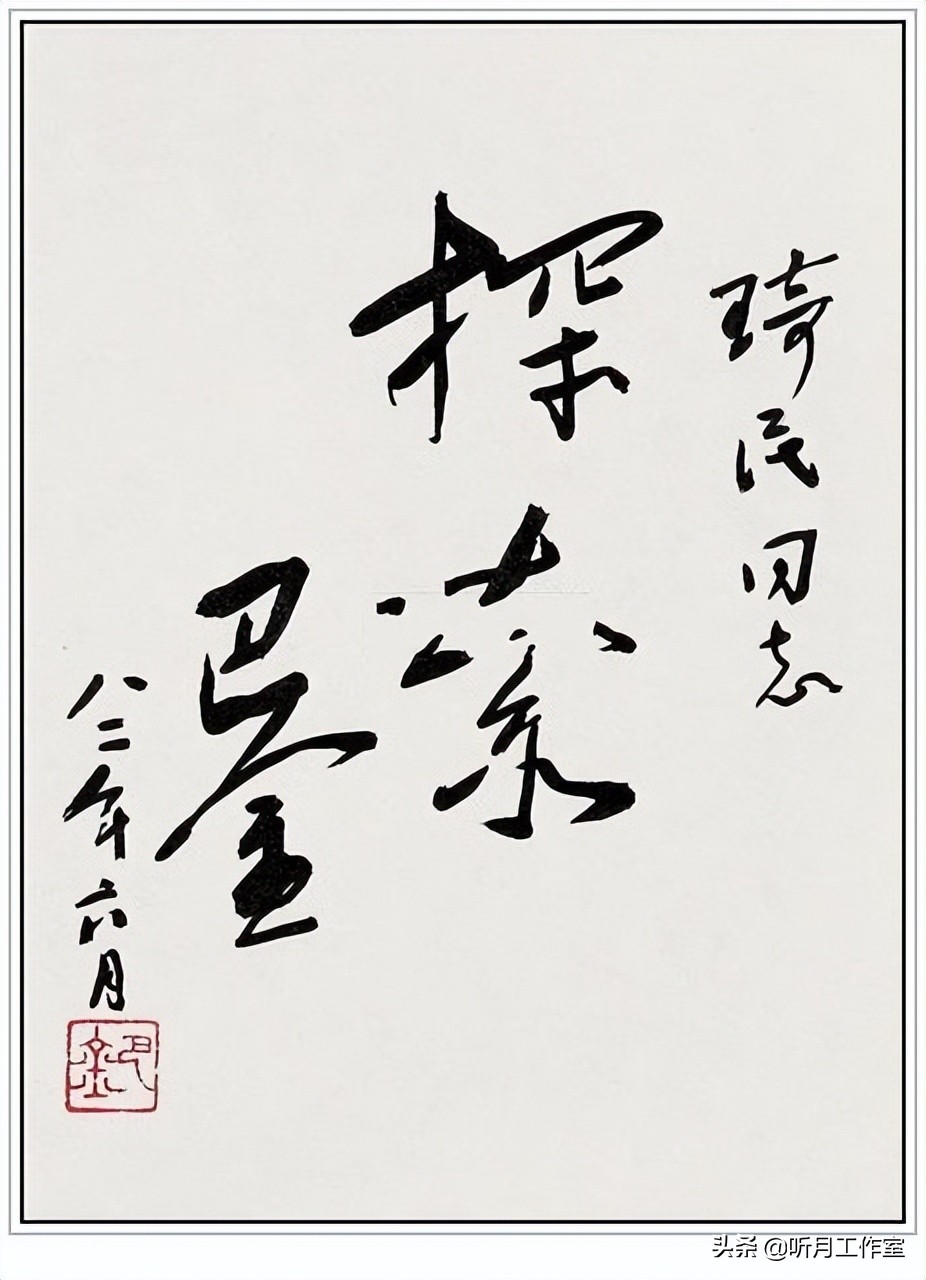 琦民同志
探索
巴金
八二年六月
巴金
头条 @听月工作室